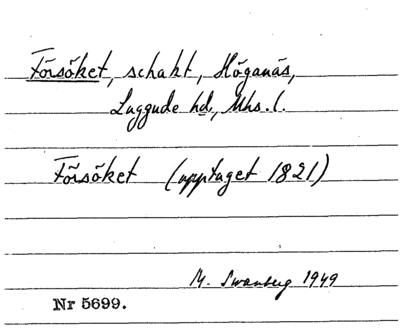 Försöket, schakt, Höganäs,
Luggude hd, Mhs. l.
Försöket (upptaget 1821)
M. Swanberg 1949
Nr 5699.